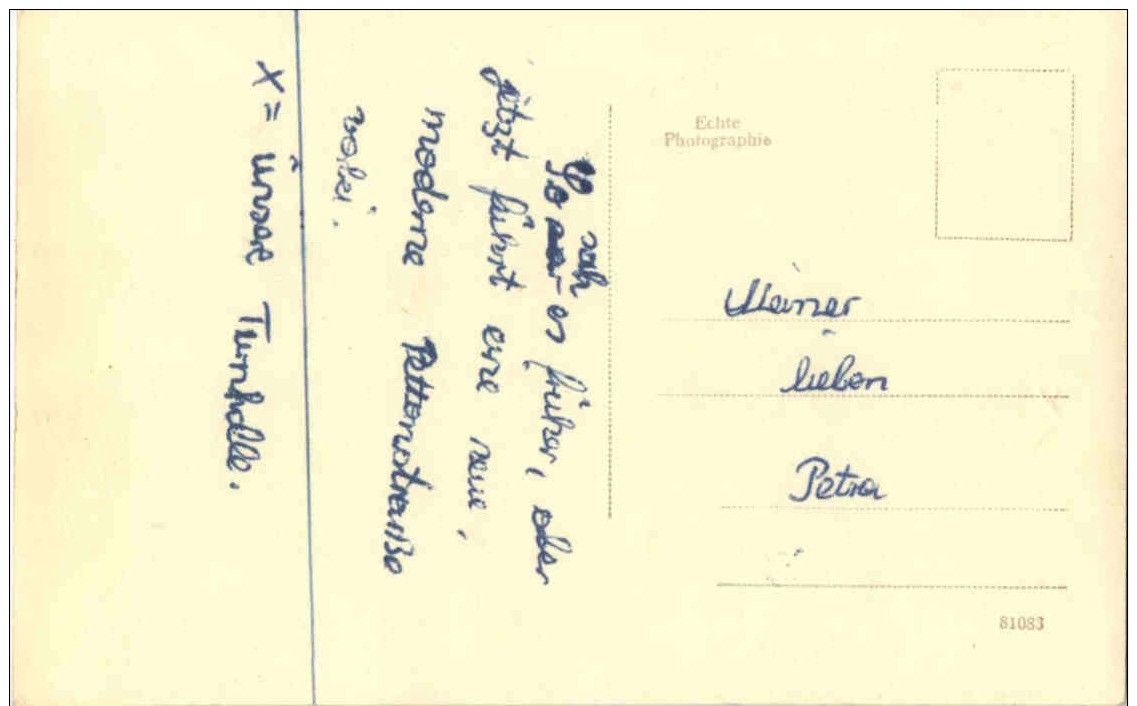 Echte
Photographie
sah
So war es früher, aber
jetzt führt eine neue,
moderne Bettonstraße
vobei.
X = unsre Turnhalle.
Meiner
lieben
Petra
81083